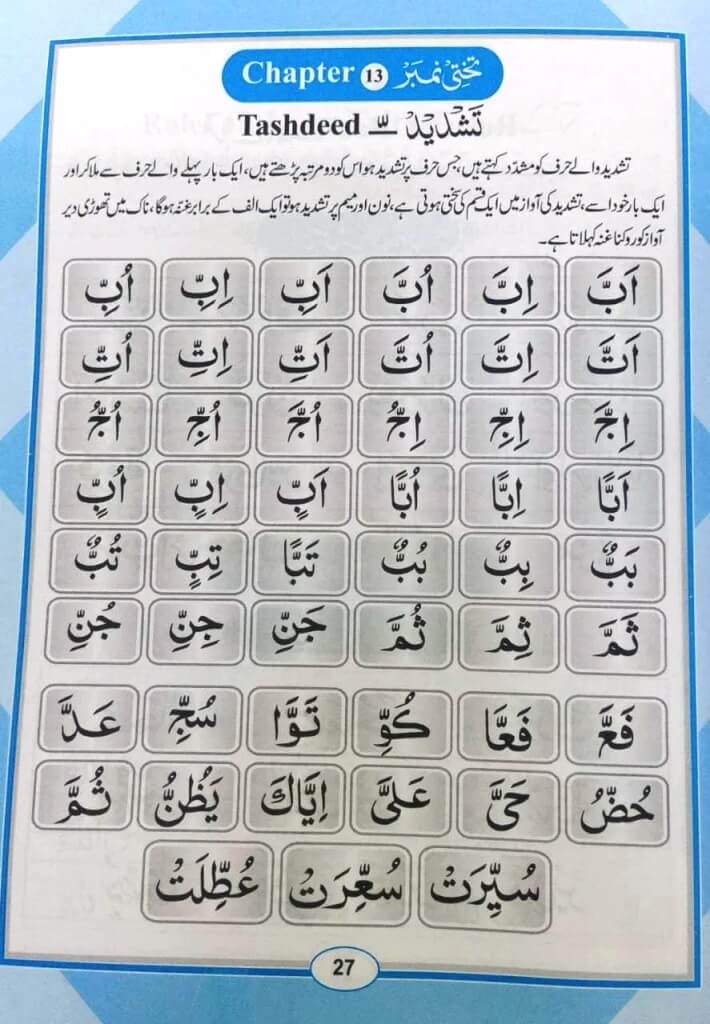 Chapter 13 تختی نمبر
Tashdeed ـّ تَشْدِیْد
تشدید والے حرف کو مشدّد کہتے ہیں، جس حرف پر تشدید ہو اس کو دو مرتبہ پڑھتے ہیں، ایک بار پہلے والے حرف سے ملا کر اور
ایک بار خود اسے، تشدید کی آواز میں ایک قسم کی سختی ہوتی ہے، نون اور میم پر تشدید ہو تو ایک الف کے برابر غنہ ہوگا، ناک میں تھوڑی دیر
آواز کو روکنا غنہ کہلاتا ہے۔
اَبَّ اِبَّ اُبَّ اَبِّ اِبِّ اُبِّ
اَتَّ اِتَّ اُتَّ اَتِّ اِتِّ اُتِّ
اِجَّ اِجِّ اِجُّ اُجَّ اُجِّ اُجُّ
اَبًّا اِبًّا اُبًّا اَبٍّ اِبٍّ اُبٍّ
بَبٌّ بِبٌّ بُبٌّ تَبًّا تِبٍّ تُبٌّ
ثَمَّ ثِمَّ ثُمَّ جَنِّ جِنِّ جُنِّ
فَعَّ فَعَّا كُوِّ تَوَّا سُجِّ عَدَّ
حُضُّ حَىَّ عَلَىَّ اِيَّاكَ يَظُنُّ ثُمَّ
سُيِّرَتْ سُعِّرَتْ عُطِّلَتْ
27